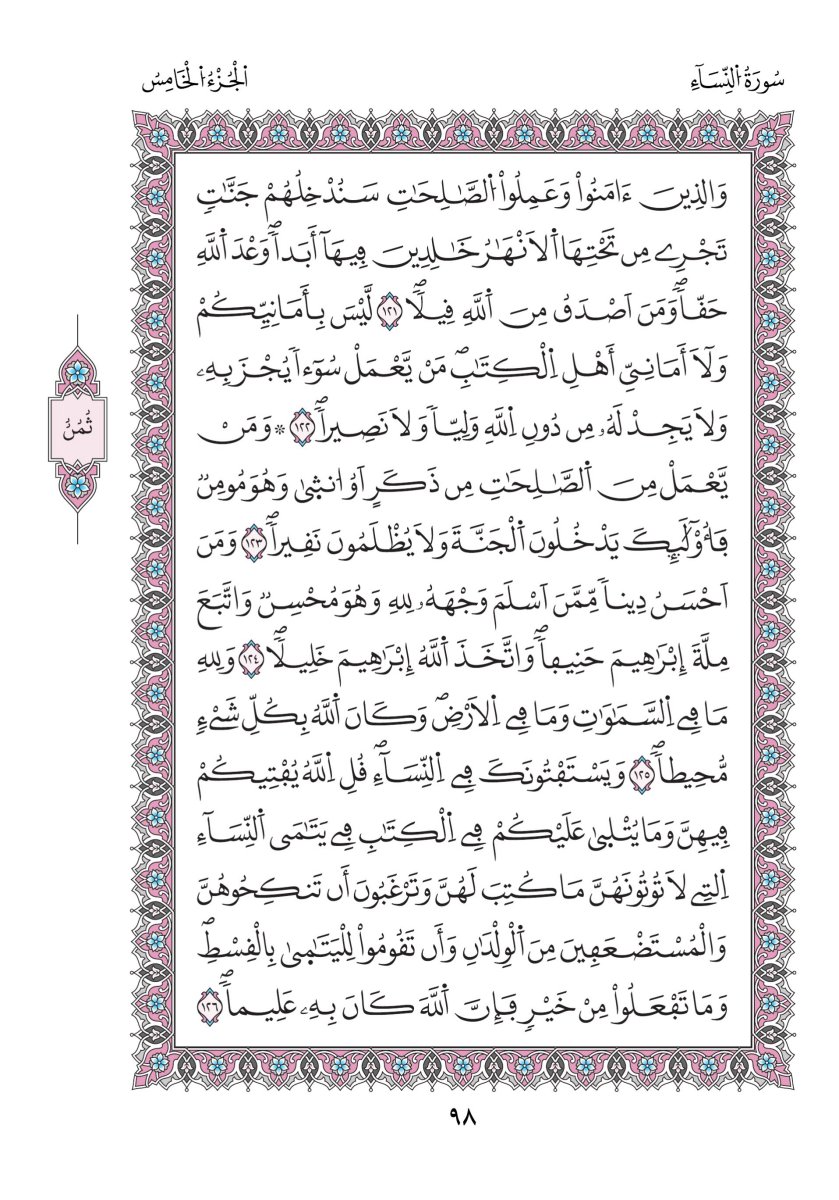 سُورَةُ اُ۬لنِّسَآءِ
اَ۬لْجُزْءُ اُ۬لْخَامِسُ
وَالذِينَ ءَامَنُواْ وَعَمِلُواْ اُ۬لصَّٰلِحَٰتِ سَنُدْخِلُهُمْ جَنَّٰتٖ
تَجْرِے مِن تَحْتِهَا اَ۬لَانْهَٰرُ خَٰلِدِينَ فِيهَآ أَبَداٗۖ وَعْدَ اَ۬للَّهِ
حَقّاٗۖ وَمَنَ اَصْدَقُ مِنَ اَ۬للَّهِ قِيلٗاۖ ١٢١ لَّيْسَ بِأَمَانِيِّكُمْ
وَلَآ أَمَانِيِّ أَهْلِ اِ۬لْكِتَٰبِۖ مَنْ يَّعْمَلْ سُوٓءاٗ يُجْزَ بِهِۦ
وَلَا يَجِدْ لَهُۥ مِن دُونِ اِ۬للَّهِ وَلِيّاٗ وَلَا نَصِيراٗۖ ١٢٢ ۞ وَمَنْ
يَّعْمَلْ مِنَ اَ۬لصَّٰلِحَٰتِ مِن ذَكَرٍ اَوُ ا۟نث۪ىٰ وَهُوَ مُومِنٞ
فَأُوْلَٰٓئِكَ يَدْخُلُونَ اَ۬لْجَنَّةَ وَلَا يُظْلَمُونَ نَقِيراٗۖ ١٢٣ وَمَنَ
اَحْسَنُ دِيناٗ مِّمَّنَ اَسْلَمَ وَجْهَهُۥ لِلهِ وَهُوَ مُحْسِنٞ وَاتَّبَعَ
مِلَّةَ إِبْرَٰهِيمَ حَنِيفاٗۖ وَاتَّخَذَ اَ۬للَّهُ إِبْرَٰهِيمَ خَلِيلٗاۖ ١٢٤ وَلِلهِ
مَا فِے اِ۬لسَّمَٰوَٰتِ وَمَا فِے اِ۬لَارْضِۖ وَكَانَ اَ۬للَّهُ بِكُلِّ شَےْءٖ
مُّحِيطاٗۖ ١٢٥ وَيَسْتَفْتُونَكَ فِے اِ۬لنِّسَآءِۖ قُلِ اِ۬للَّهُ يُفْتِيكُمْ
فِيهِنَّ وَمَا يُتْل۪ىٰ عَلَيْكُمْ فِے اِ۬لْكِتَٰبِ فِے يَتَٰمَى اَ۬لنِّسَآءِ
اِ۬لتِے لَا تُوتُونَهُنَّ مَا كُتِبَ لَهُنَّ وَتَرْغَبُونَ أَن تَنكِحُوهُنَّ
وَالْمُسْتَضْعَفِينَ مِنَ اَ۬لْوِلْدَٰنِ وَأَن تَقُومُواْ لِلْيَتَٰم۪ىٰ بِالْقِسْطِۖ
وَمَا تَفْعَلُواْ مِنْ خَيْرٖ فَإِنَّ اَ۬للَّهَ كَانَ بِهِۦ عَلِيماٗۖ ١٢٦
ثُمُنُ
٩٨